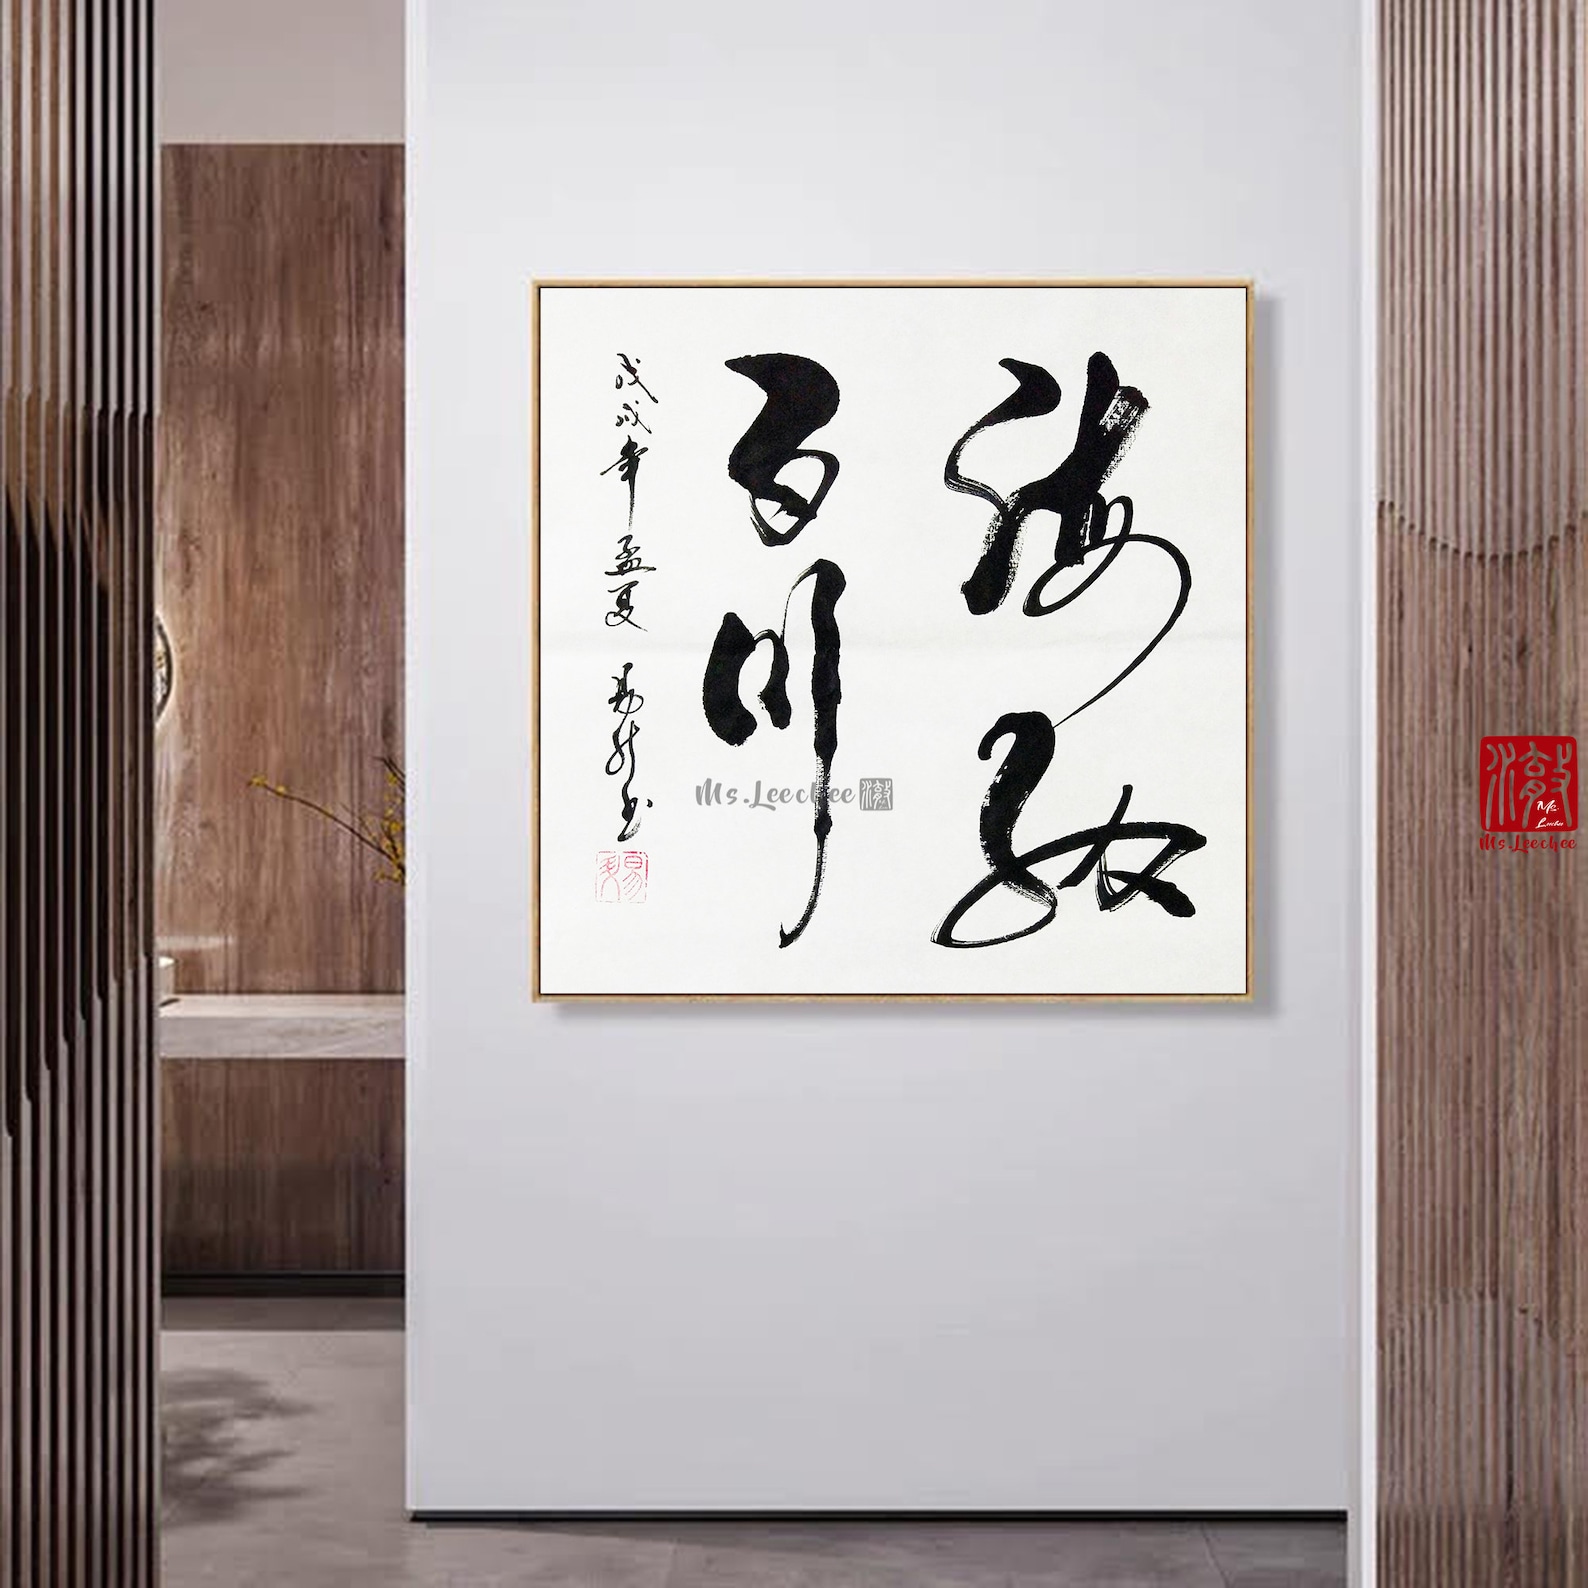 海纳
百川
戊戌年孟夏 易书
Ms.Leechee
Ms.
Leechee
Ms.Leechee